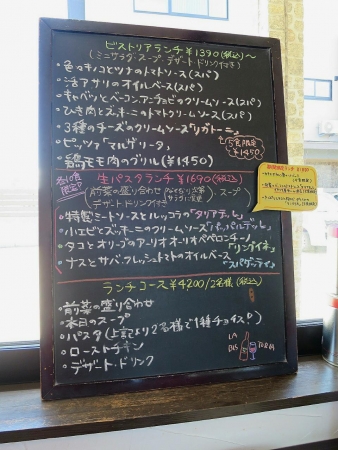 ビストリアランチ ¥1390(税込)〜
(ミニサラダ・スープ・デザート・ドリンク付き)
・色々キノコとツナのトマトソース(スパ)
・活アサリのオイルベース(スパ)
・キャベツとベーコン、アンチョビのクリームソース(スパ)
・ひき肉とズッキーニのトマトソース(スパ)
・3種のチーズのクリームソース「リガトーニ」
5食限定
¥1450
・ピッツァ「マルゲリータ」
・鶏モモ肉のグリル(¥1450)
各10食限定
生パスタランチ ¥1690(税込)
前菜の盛り合わせ
スープ
デザートドリンク付き
・特製ミートソースとルッコラの「タリアテッレ」
・小エビとズッキーニのクリームソース「パッパルデッレ」
・タコとオリーブのアーリオオーリオペペロンチーノ「リングイネ」
・ナスとサバ、フレッシュトマトのオイルベース「スパゲッティ」
ランチコース ¥4200/2名様(税込)
・前菜の盛り合わせ
・本日のスープ
・パスタ(上記より2名様で1種チョイス!)
・ローストチキン
・デザート・ドリンク
LA
BIS TORIA